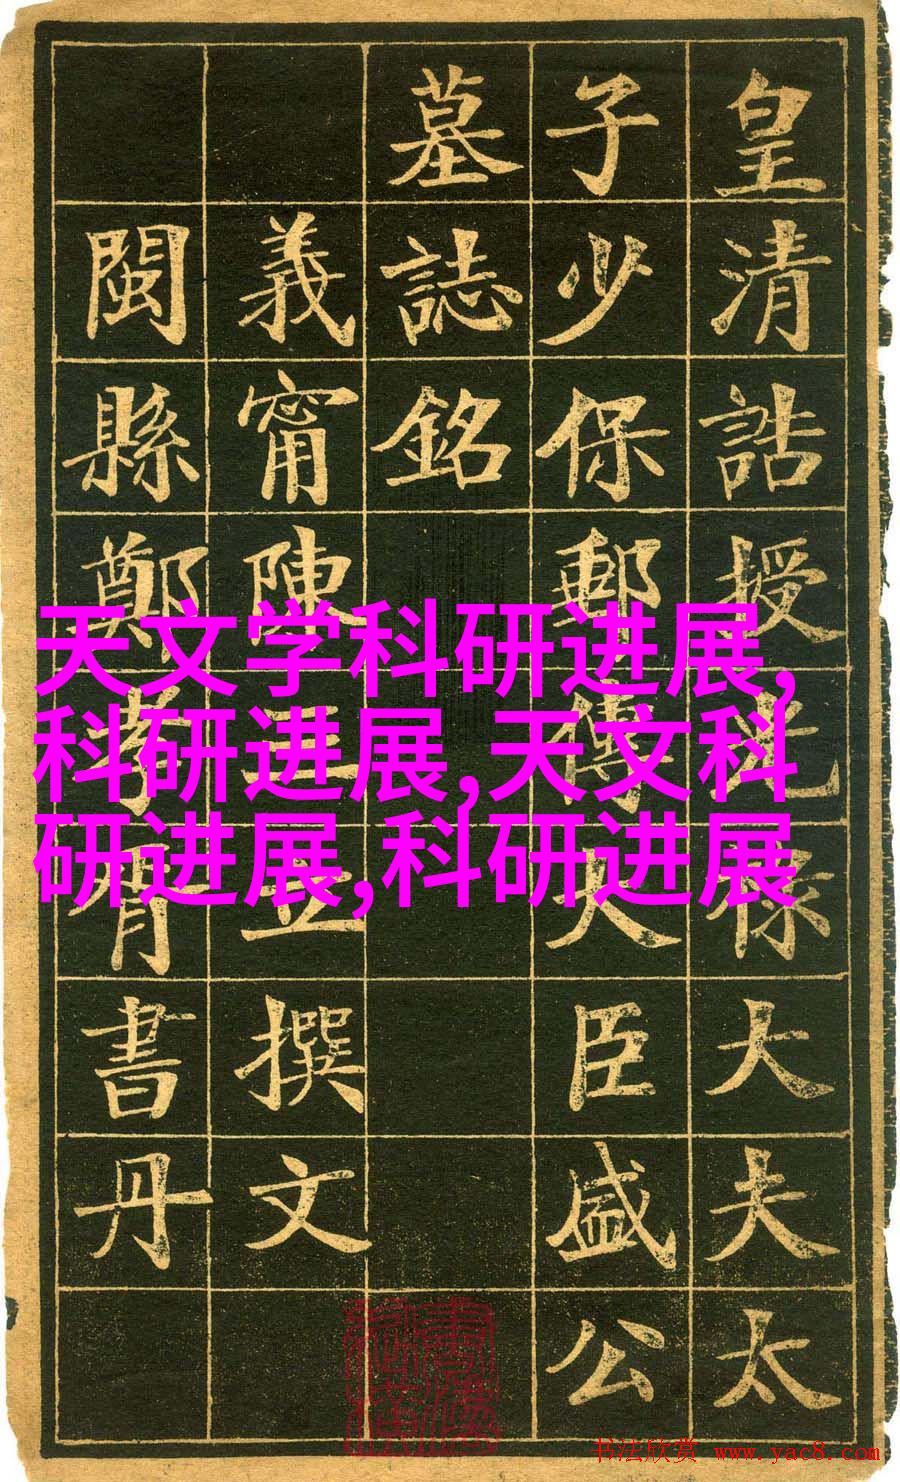 皇清誥授光祿大夫太
子少保郵傳大臣盛公
墓誌銘
義甯陳三立撰文
閩縣鄭孝胥書丹
天文学科研进展,
科研进展,天文科
研进展,科研进展
书法欣赏 www.yac8.com